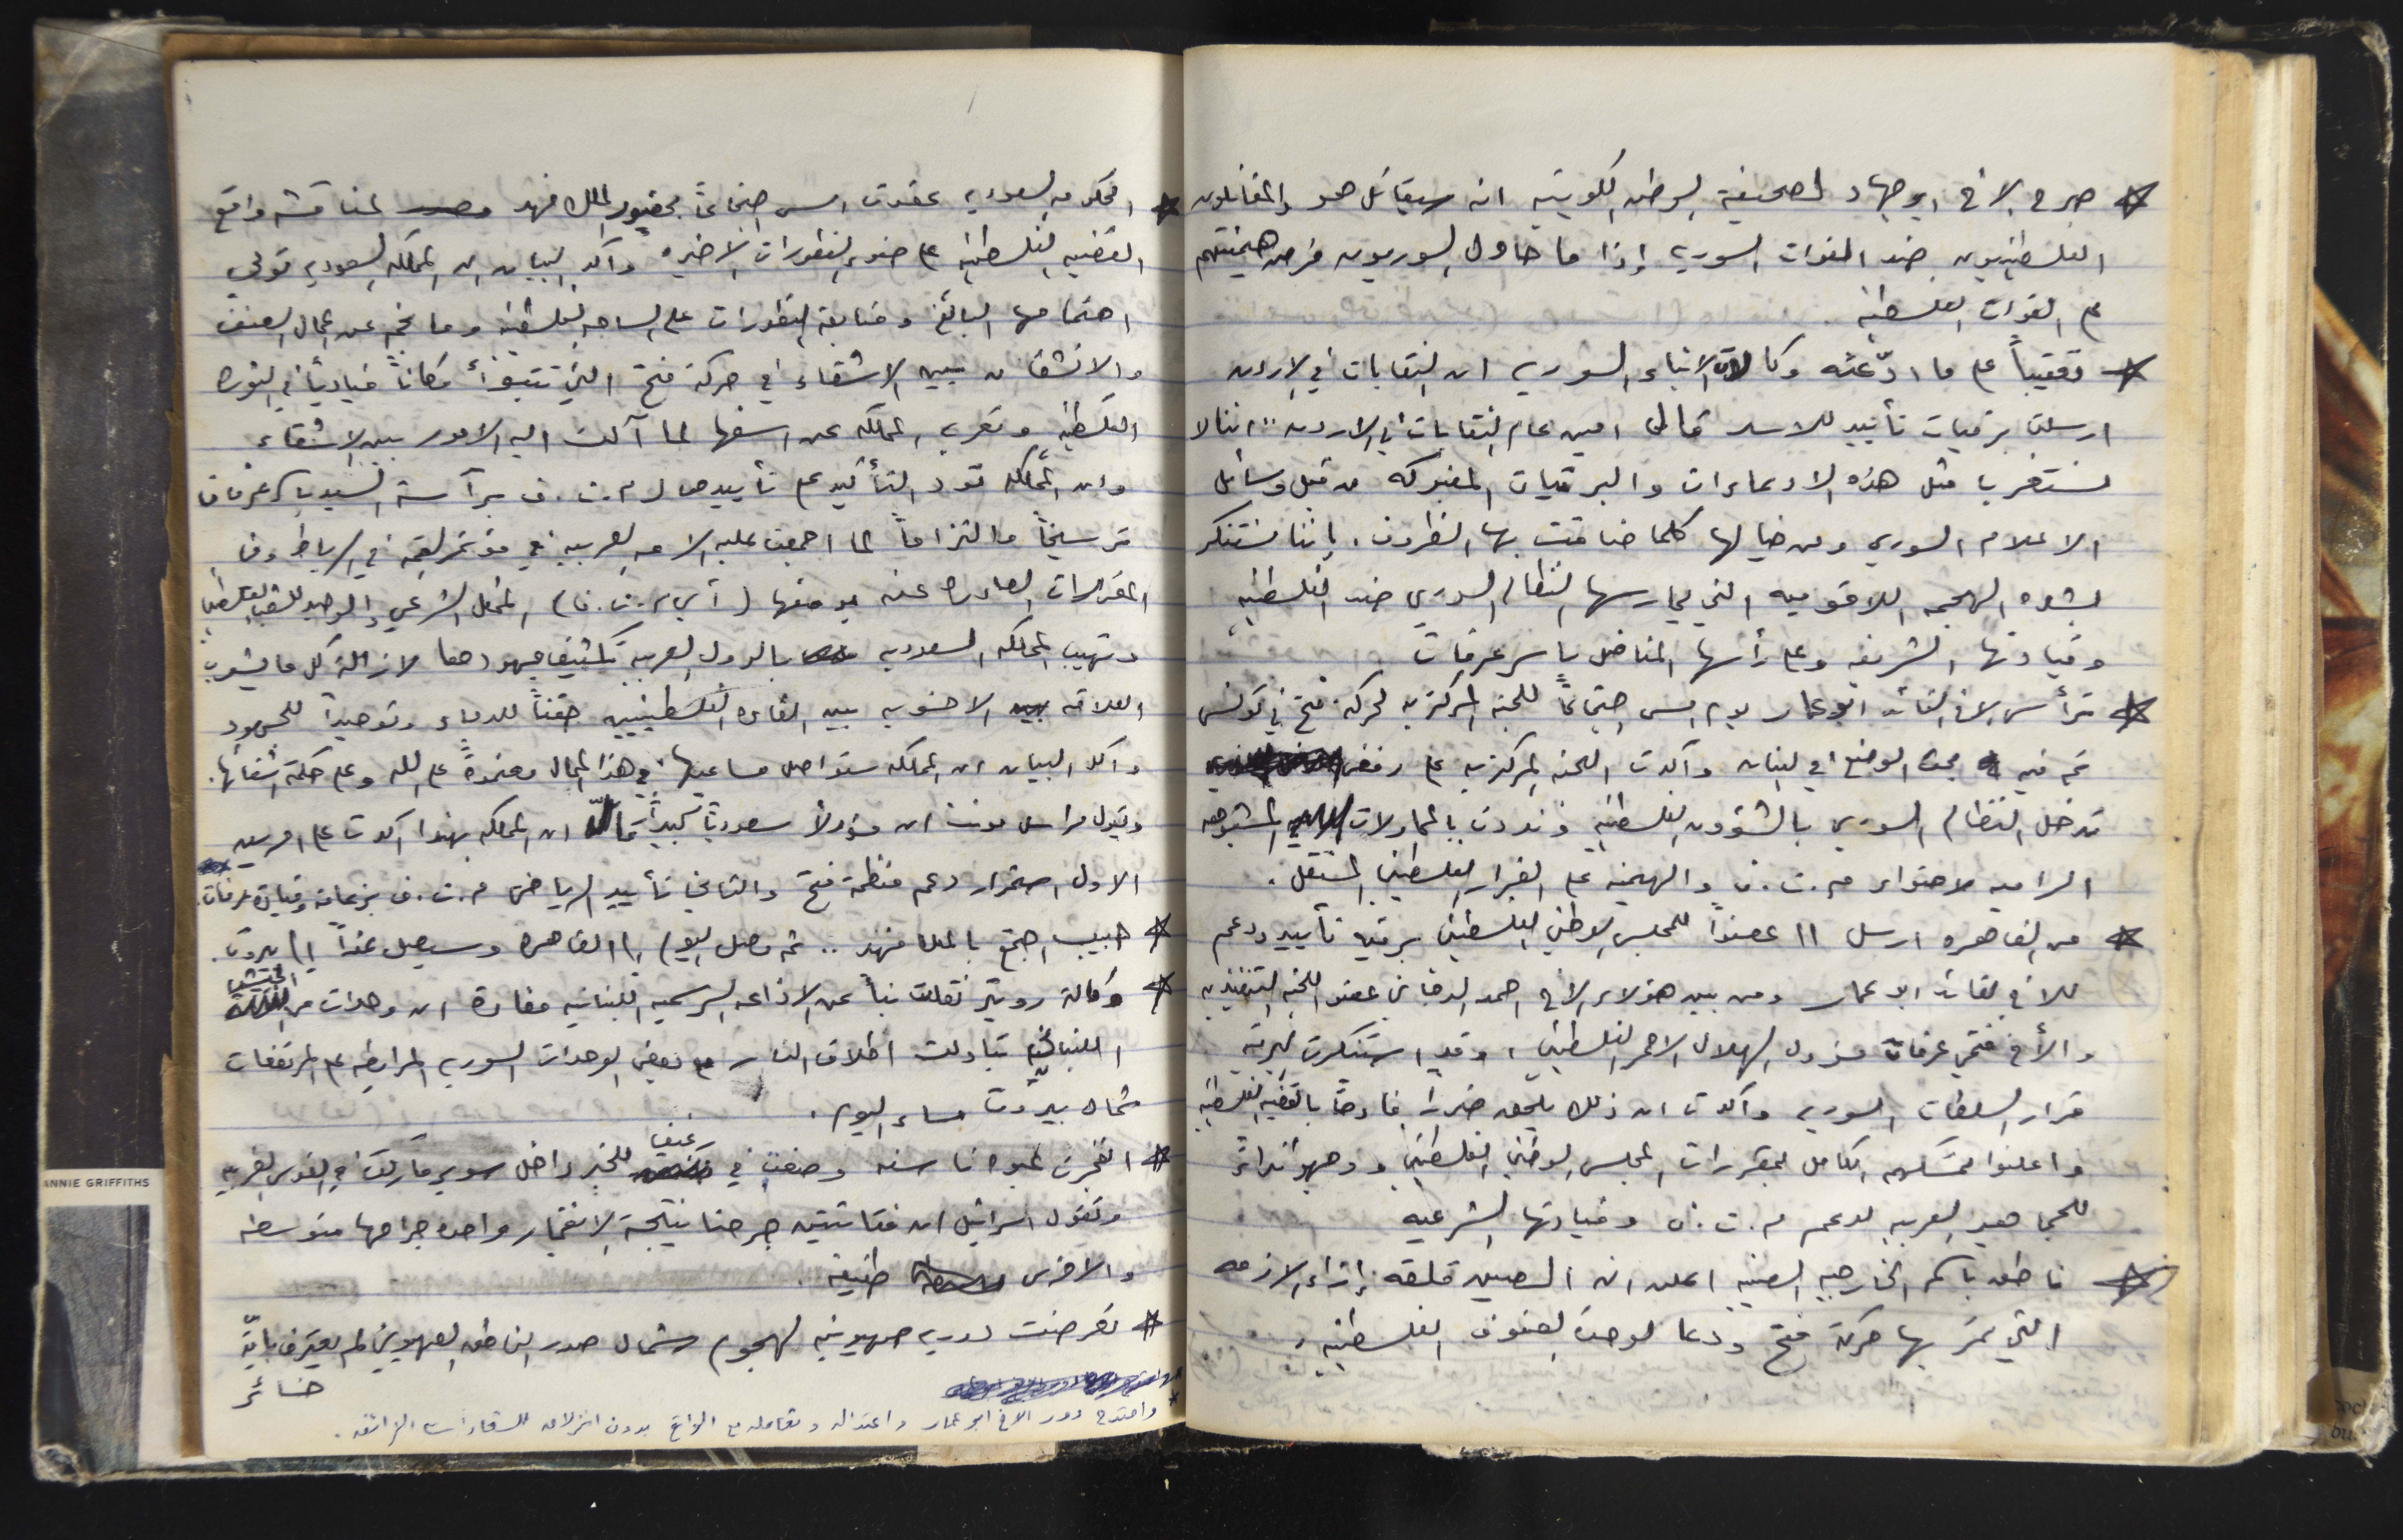 * صرح الاخ ابو جهاد لصحيفة الوطن الكويتيه انه سيقاتل هو والمقاتلون
الفلسطينيون ضد القوات السوريه إذا ما حاول السوريون فرض هيمنتهم
على القوات الفلسطينيه .
* تعقيباً على ما ادّعته وكالة الانباء السوريه ان النقابات في الاردن
ارسلت برقيات تأييد للاسد قال امين عام النقابات في الاردن " اننا لا
نستغرب مثل هذه الادعاءات والبرقيات المفبركه من قبل وسائل
الاعلام السوري ومن خيالها كلما ضاقت بها الظروف . إننا نستنكر
بشده الهجمه اللاقوميه التي يمارسها النظام السوري ضد الفلسطينيه
وقيادتها الشريفه وعلى رأسها المناضل ياسر عرفات
* ترأس الاخ القائد ابو عمار يوم امس اجتماعاً للجنه المركزيه لحركة فتح في تونس
تم فيه بحث الوضع في لبنان وأكدت اللجنه المركزيه على رفض
تدخل النظام السوري بالشؤون الفلسطينيه ونددت بالمحاولات المشبوهه
الراميه لاحتواء م.ت.ف والهيمنه على القرار الفلسطيني المستقل .
* من القاهره ارسل 11 عضواً للمجلس الوطني الفلسطيني برقية تأييد ودعم
للاخ القائد ابو عمار ومن بين هؤلاء الاخ احمد الدجاني عضو اللجنه التنفيذيه
والأخ فتحي عرفات مسؤول الهلال الاحمر الفلسطيني ، وقد استنكرت البرقيه
قرار السلطات السوريه وأكدت ان ذلك يلحق ضرراً فادحاً بالقضيه الفلسطينيه
واعلنوا تمسكهم الكامل بمقررات المجلس الوطني الفلسطيني ووجهوا نداءً
للجماهير العربيه لدعم م.ت.ف وقيادتها الشرعيه
* ناطق باسم الخارجيه الصينيه اعلن ان الصين قلقه إزاء الازمه
التي تمر بها حركة فتح ودعا لوحدة الصفوف الفلسطينيه .
* الحكومه السعوديه عقدت امس اجتماعاً بحضور الملك فهد لمناقشة واقع
القضيه الفلسطينيه على ضوء التطورات الاخيره وأكد البيان ان المملكه السعوديه تولي
اهتمامها البالغ ومتابعة التطورات على الساحه الفلسطينيه وما نجم عن اعمال العنف
والانشقاق بين الاشقاء في حركة فتح التي تتبوأ مكاناً قيادياً في الثوره
الفلسطينيه وتعرب المملكه عن اسفها لما آلت اليه الامور بين الاشقاء
وان المملكه تود التأكيد على تأييدها ل م.ت.ف برآسة السيد ياسر عرفات
ترسيخاً والتزاماً لما اجمعت عليه الامه العربيه في مؤتمر القمه في الرباط وفي
المقررات الصادره عنه بوصفها ( أي م.ت.ف ) الممثل الشرعي والوحيد للشعب الفلسطيني
وتهيب المملكه السعوديه بالدول العربيه تكثيف جهودها لازالة كل ما يشوب
العلاقه الاخويه بين القاده الفلسطينيين حقناً للدماء وتوحيداً للجهود
واكد البيان ان المملكه ستواصل مساعيها في هذا المجال معتمدةً على الله وعلى حكمة اشقائها .
ويقول مراسل مونت ان مسؤولاً سعودياً كبيراً قال ان المملكه بهذا اكدت على امرين
الاول استمرار دعم منظمة فتح والثاني تأييد الرياض م.ت.ف بزعامة وقيادة عرفات .
* حبيب اجتمع بالملك فهد .. ثم وصل اليوم إلى القاهره وسيصل غداً إلى بيروت .
* وكالة رويتر نقلت نبأ عن الاذاعه الرسميه اللبنانيه مفاده ان وحدات من الجيش
اللبناني تبادلت اطلاق النار مع بعض الوحدات السوريه المرابطه على المرتفعات
شمال بيروت مساء اليوم .
* انفجرت عبوه ناسفه وضعت في رغيف للخبز داخل سوبر ماركت في القدس الغربيه
وتقول اسرائيل ان فتاتين جرحتا نتيجة الانفجار واحده جراحها متوسطه
والاخرى طفيفه .
* تعرضت دوريه صهيونيه لهجوم شمال صور الناطق الصهيوني لم يعترف بأيّة
خسائر
* وامتدح دور الاخ ابو عمار واعتداله وتعامله مع الواقع بدون انزلاقه للشعارات الزائفه .
ANNIE GRIFFITHS